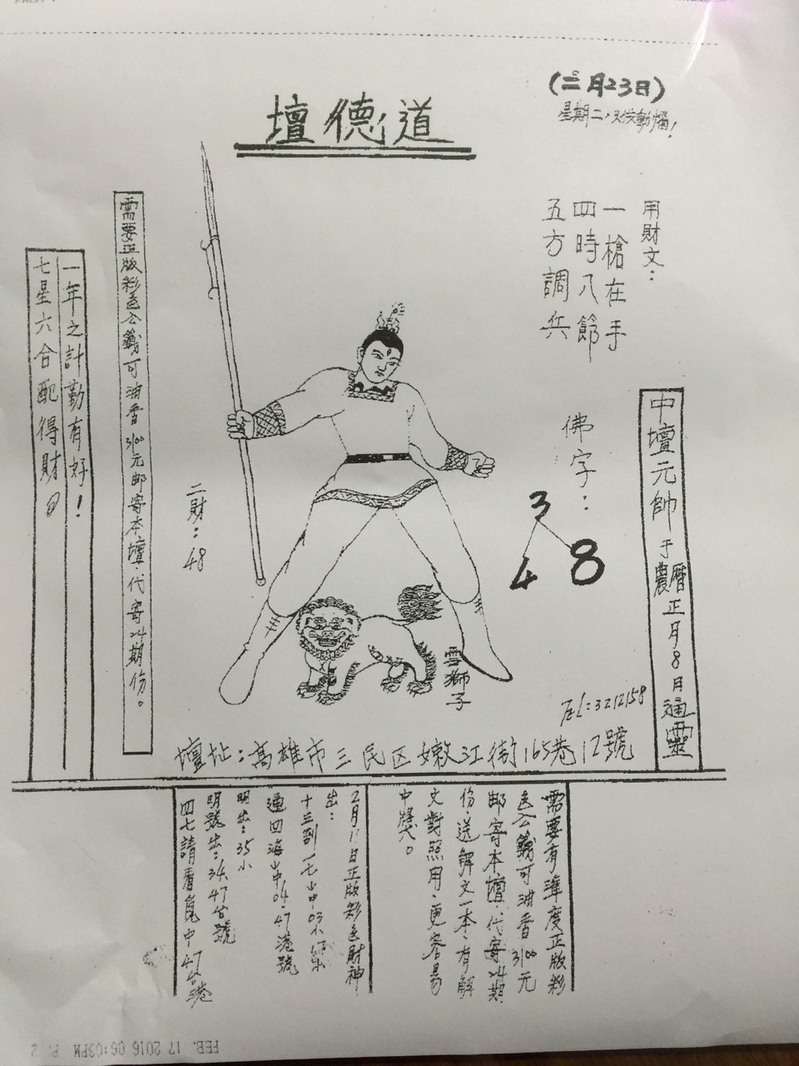 (二月23日)
道德壇
用財文:
一槍在手
四時八節
五方調兵
佛字:
3
4 8
中壇元帥于農曆正月8日通靈
需要正版彩色公籤可油香3100元邮寄本壇.代寄24期份。
一年之計勤有好!
七星六合配得財
二財:48
雪獅子
TEL:3212158
壇址:高雄市三民区嫩江街165巷12號
需要有準度正版彩
色公籤可油香3100元
邮寄本壇.代寄24期
份.送解文一本.有解
文對照用.更容易
中獎。
2月11日正版彩色財神
出:
十三到一七中03小
通四海中04.47港號
明出:35小
明號出:34.47台號
四七請看氣中47台港
FEB. 17 2016 06:03PM P. 2